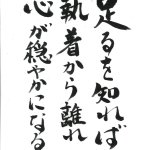 足るを知れば
執着から離れ
心が穏やかになる